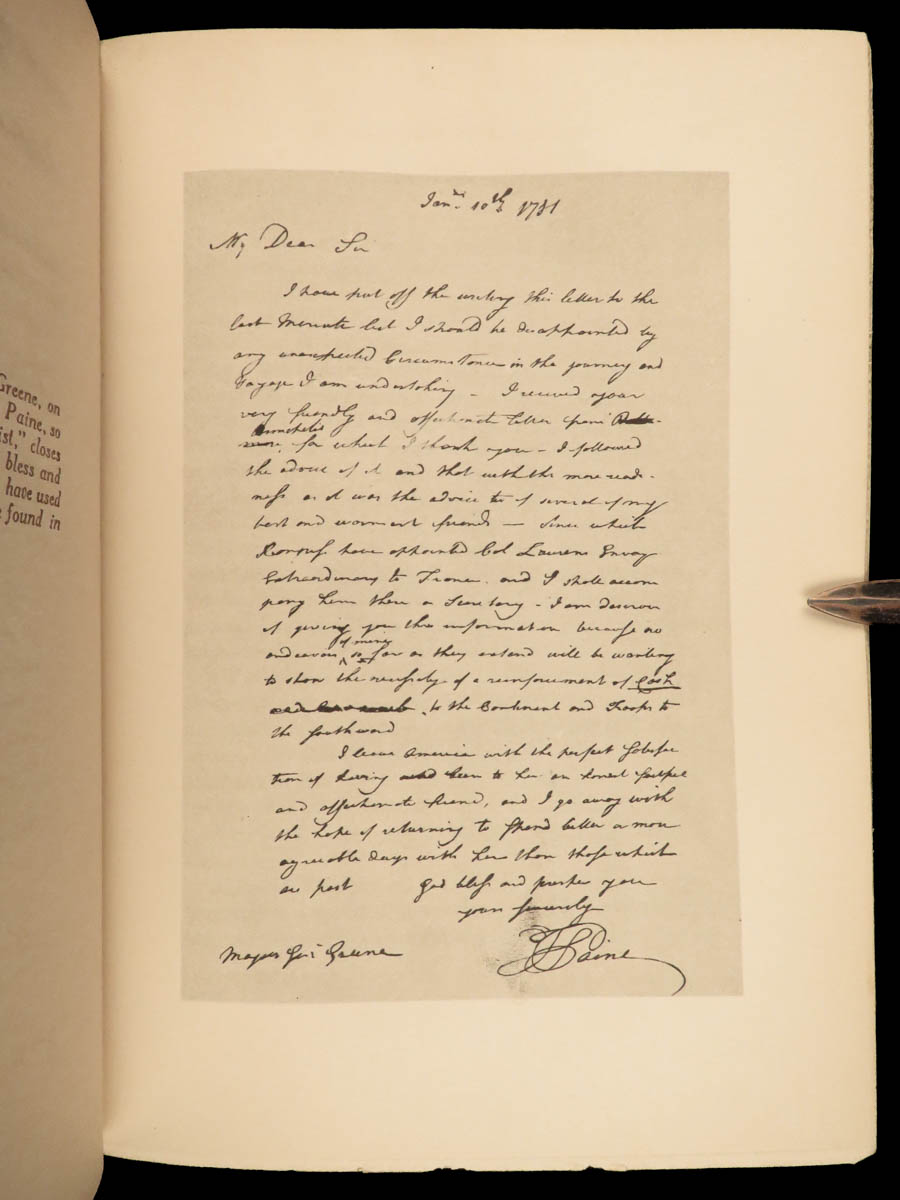 Greene, on
Paine, so
ist," closes
bless and
have used
found in
Jan.ry 10th 1781
My Dear Sir
I have put off the writing this letter to the
last Minute lest I should be disappointed by
any unexpected Circumstance in the journey and
Voyage I am undertaking - I received your
very friendly and affectionate letter from
for which I thank you - I followed
the advice of it and that with the more readi-
ness as it was the advice to of several of my
best and warmest friends - Since which
Congress have appointed Col Laurens Envoy
Extraordinary to France. and I shall accom
pany him there as Secretary - I am desirous
of giving you this information because no
endeavors of mine so far as they extend will be wanting
to shew the necessity of a reinforcement of Cash
to the Continent and Troops to
the Southward
I leave America with the perfect Satisfac
tion of having been to her an honest faithful
and affectionate friend, and I go away with
the hope of returning to spend better & more
agreeable days with her than those which
are past God bless and prosper you
yours sincerely
T Paine
Major Genl Greene